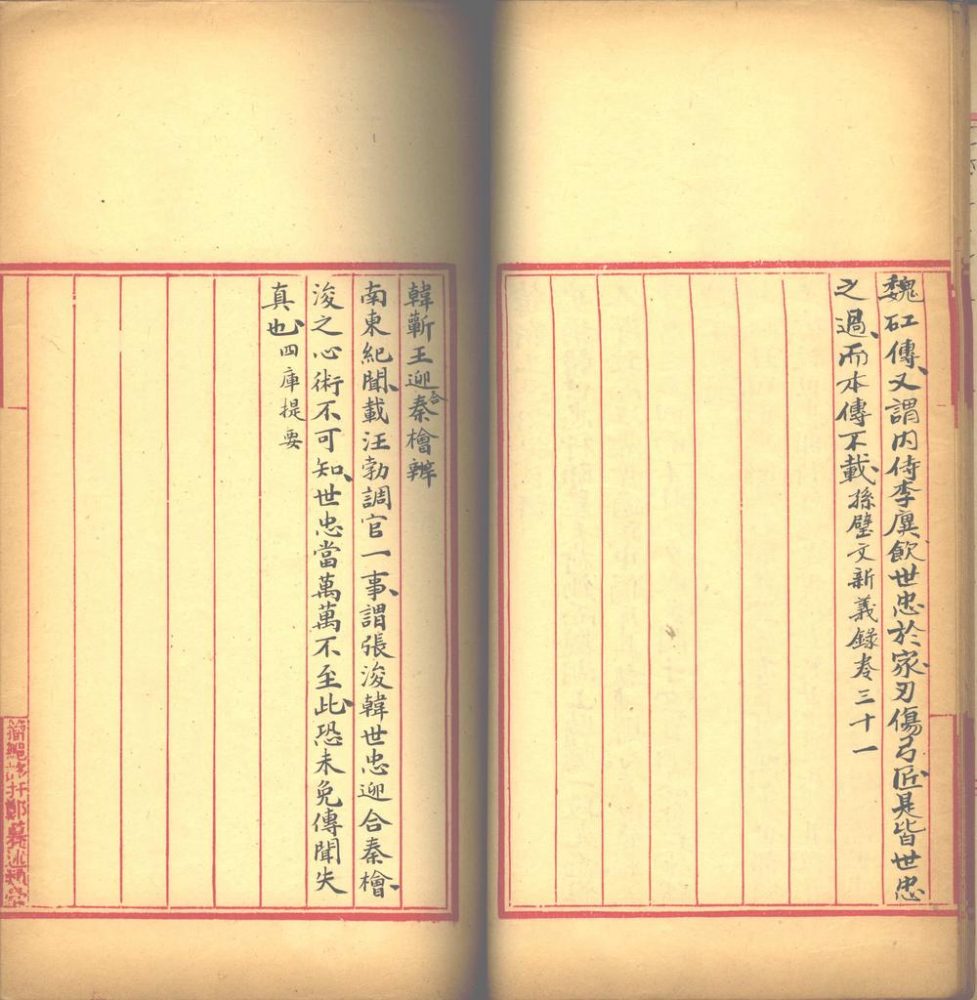 魏矼傳、又謂內侍李廙飲世忠於家、刃傷弓匠、是皆世忠
之過、而本傳不載、孫璧文新義錄卷三十一
韓蘄王迎合秦檜辨
南東紀聞、載汪勃調官一事、謂張浚韓世忠迎合秦檜、
浚之心術不可知、世忠當萬萬不至此、恐未免傳聞失
真也、四庫提要